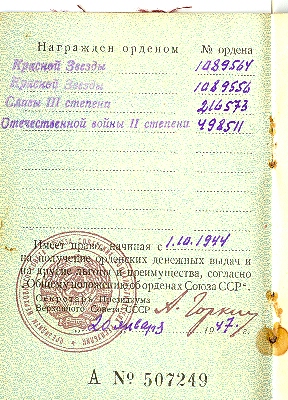 Награжден орденом № ордена
Красной Звезды 1089564
Красной Звезды 1089556
Славы III степени 216573
Отечественной войны II степени 498511
Имеет право, начиная с 1.10.1944
на получение орденских денежных выдач и
на другие льготы и преимущества, согласно
„Общему положению об орденах Союза ССР“.
Секретарь Президиума
Верховного Совета СССР А. Горкин
20 января 1947 г.
А № 507249